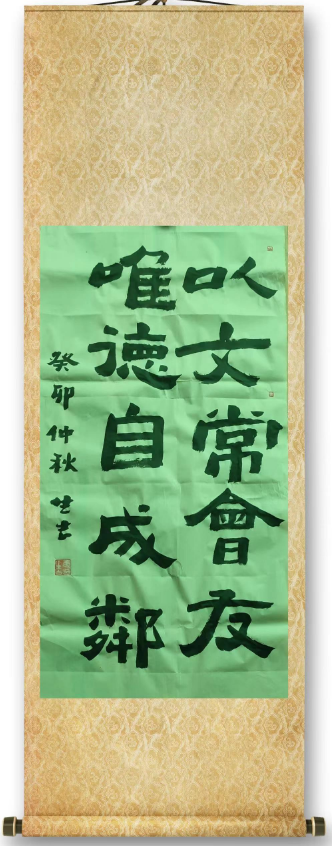 以文常會友
唯德自成鄰
癸卯仲秋